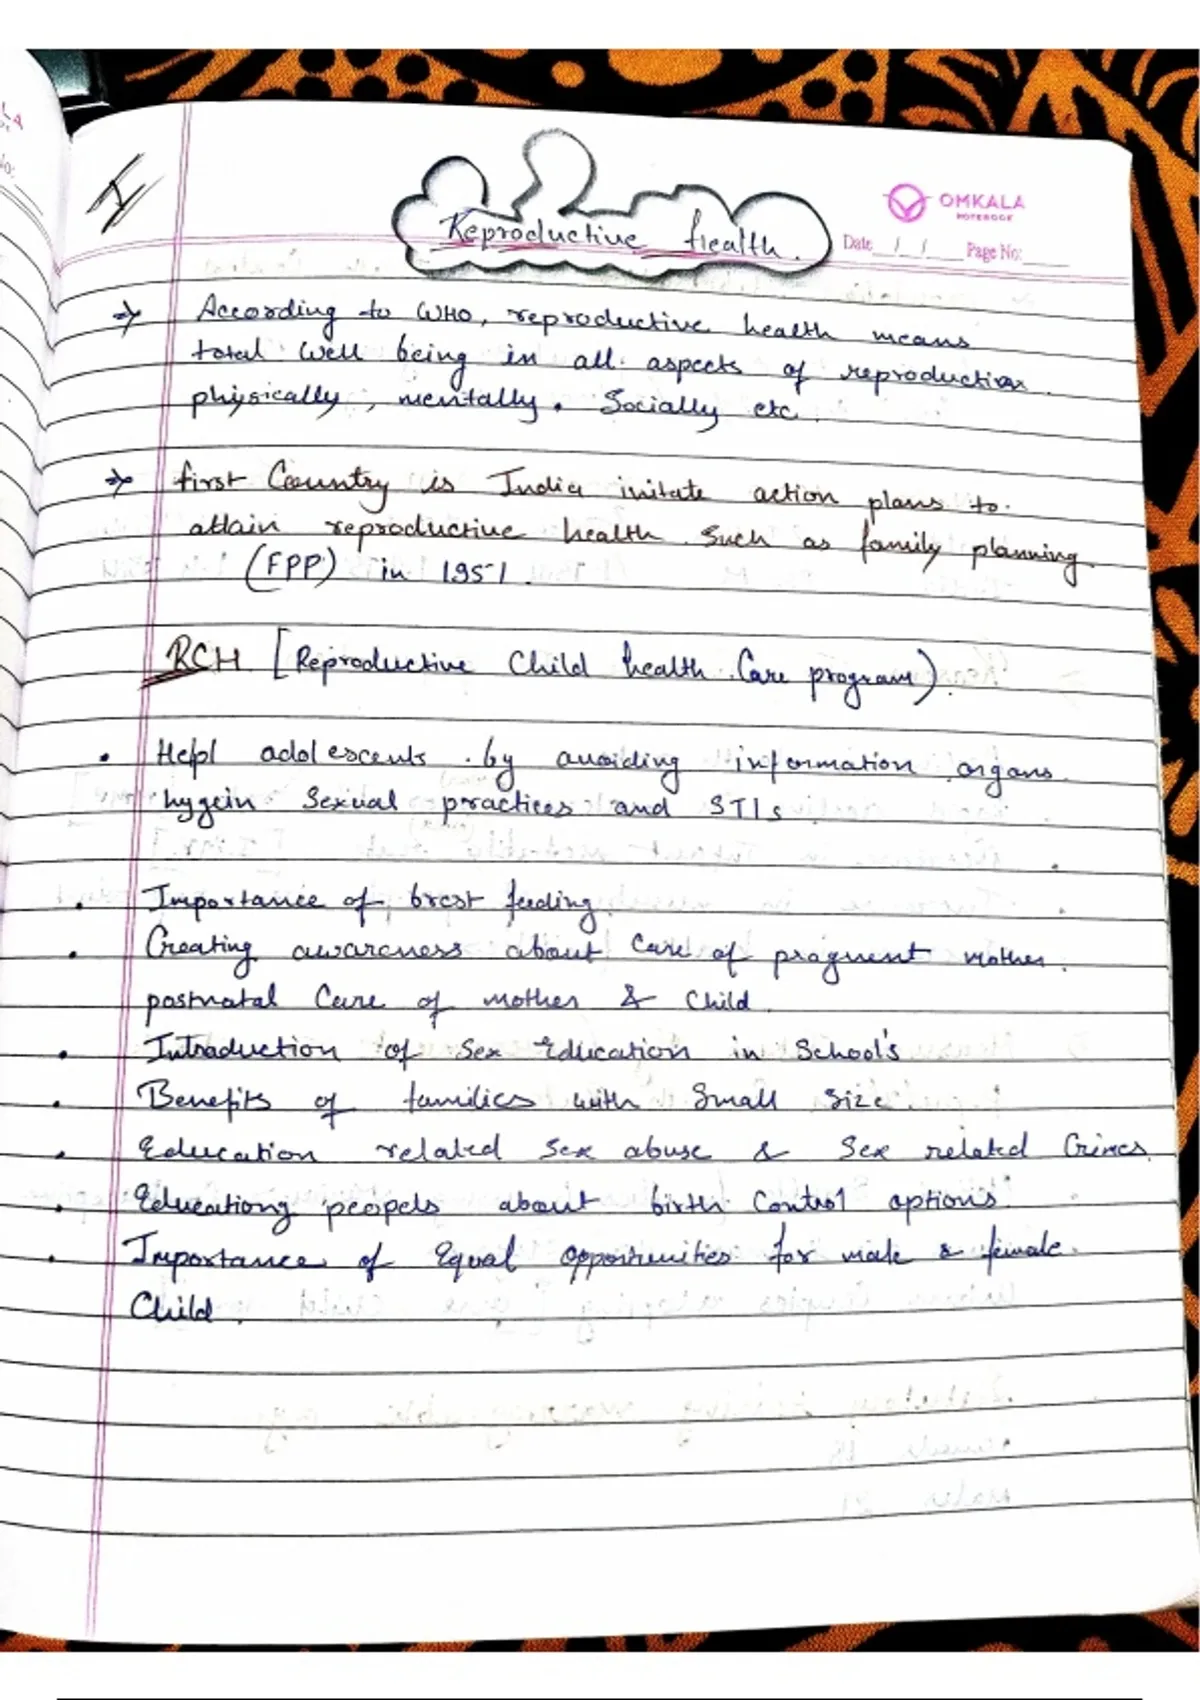 I
Reproductive Health.
OMKALA
NOTEBOOK
Date / / Page No:
⇒ According to WHO, reproductive health means
total well being in all aspects of reproduction
physically, mentally, Socially etc.
⇒ first Country is India initate action plans to
attain reproductive health such as family planning
(FPP) in 1951.
RCH [Reproductive Child health Care program).
• Helpl adolescents by avoiding information organs
hygein Sexual practices and STIs
• Importance of brest feeding
• Creating awareness about Care of pragnent mother.
postnatal Care of mother & Child.
• Introduction of Sex Education in School's
• Benefits of families with Small Size
• Education related Sex abuse & Sex related Crimes.
• Educationg peopels about birth Control options
• Importance of Equal opportunities for male & female
Child.